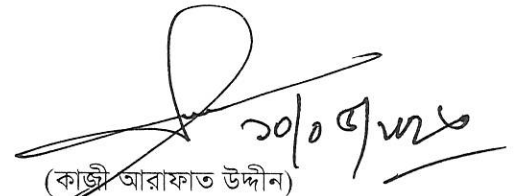 ১০/০৫/২০২৬
(কাজী আরাফাত উদ্দীন)